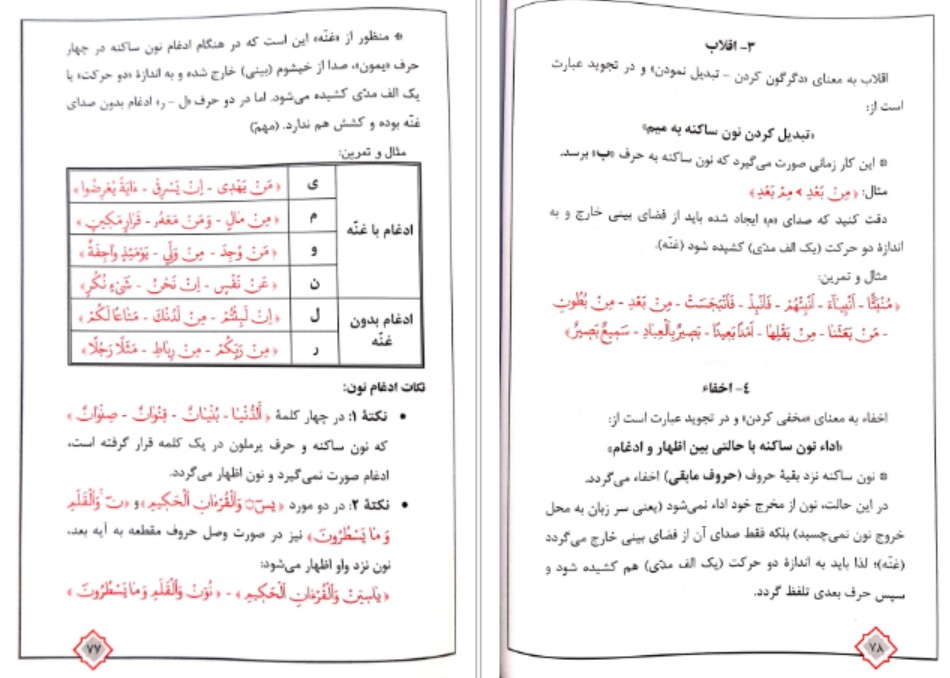 * منظور از «غنّه» این است که در هنگام ادغام نون ساکنه در چهار
حرف «یمون»، صدا از خیشوم (بینی) خارج شده و به اندازهٔ «دو حرکت» یا
یک الف مدّی کشیده می‌شود. اما در دو حرف «ل - ر» ادغام بدون صدای
غنّه بوده و کشش هم ندارد. (مهم)
مثال و تمرین:
ادغام با غنّه
ی ﴿مَنْ يَهْدِى - اِنْ يَسْرِقْ - ءَايَةً يُعْرِضُوا﴾
م ﴿مِنْ مَالٍ - وَمَنْ مَعَهُۥ - قَرَارٍ مَكِينٍ﴾
و ﴿مَنْ وُجِدَ - مِنْ وَلِيٍّ - يَوْمَئِذٍ وَاجِفَةٌ﴾
ن ﴿عَنْ نَفْسٍ - اِنْ نَحْنُ - شَىْءٍ نُكُرٍ﴾
ادغام بدون غنّه
ل ﴿اِنْ لَبِثْتُمْ - مِنْ لَدُنْكَ - مَتَاعًا لَكُمْ﴾
ر ﴿مِنْ رَبِّكُمْ - مِنْ رِبَاطِ - مَثَلًا رَجُلًا﴾
نکات ادغام نون:
• نکتهٔ ۱: در چهار کلمهٔ ﴿اَلدُّنْيَا - بُنْيَانٌ - قِنْوَانٌ - صِنْوَانٌ﴾
که نون ساکنه و حرف یرملون در یک کلمه قرار گرفته است،
ادغام صورت نمی‌گیرد و نون اظهار می‌گردد.
• نکتهٔ ۲: در دو مورد ﴿يسٓ وَالْقُرْءَانِ الْحَكِيمِ﴾ و ﴿نٓ وَالْقَلَمِ
وَمَا يَسْطُرُونَ﴾ نیز در صورت وصل حروف مقطعه به آیه بعد،
نون نزد واو اظهار می‌شود:
﴿يَاسِينْ وَالْقُرْءَانِ الْحَكِيمِ﴾ - ﴿نُونْ وَالْقَلَمِ وَمَا يَسْطُرُونَ﴾
۷۷
۳- اقلاب
اقلاب به معنای «دگرگون کردن - تبدیل نمودن» و در تجوید عبارت
است از:
«تبدیل کردن نون ساکنه به میم»
* این کار زمانی صورت می‌گیرد که نون ساکنه به حرف «ب» برسد.
مثال: ﴿مِنْ بَعْدِ > مِمْ بَعْدِ﴾
دقت کنید که صدای «م» ایجاد شده باید از فضای بینی خارج و به
اندازهٔ دو حرکت (یک الف مدّی) کشیده شود (غنّه).
مثال و تمرین:
﴿مُنْبَثًّا - اَنْبِيَاءَ - اَنْبِئْهُمْ - فَانْبِذْ - فَانْبَجَسَتْ - مِنْ بَعْدِ - مِنْ بُطُونِ
- مَنْ بَعَثَنَا - مِنْ بَقْلِهَا - اَمَدًا بَعِيدًا - بَصِيرٌ بِالْعِبَادِ - سَمِيعٌ بَصِيرٌ﴾
٤- اخفاء
اخفاء به معنای «مخفی کردن» و در تجوید عبارت است از:
«اداء نون ساکنه با حالتی بین اظهار و ادغام»
* نون ساکنه نزد بقیهٔ حروف (حروف مابقی) اخفاء می‌گردد.
در این حالت، نون از مخرج خود اداء نمی‌شود (یعنی سر زبان به محل
خروج نون نمی‌چسبد) بلکه فقط صدای آن از فضای بینی خارج می‌گردد
(غنّه)؛ لذا باید به اندازهٔ دو حرکت (یک الف مدّی) هم کشیده شود و
سپس حرف بعدی تلفظ گردد.
۷۸